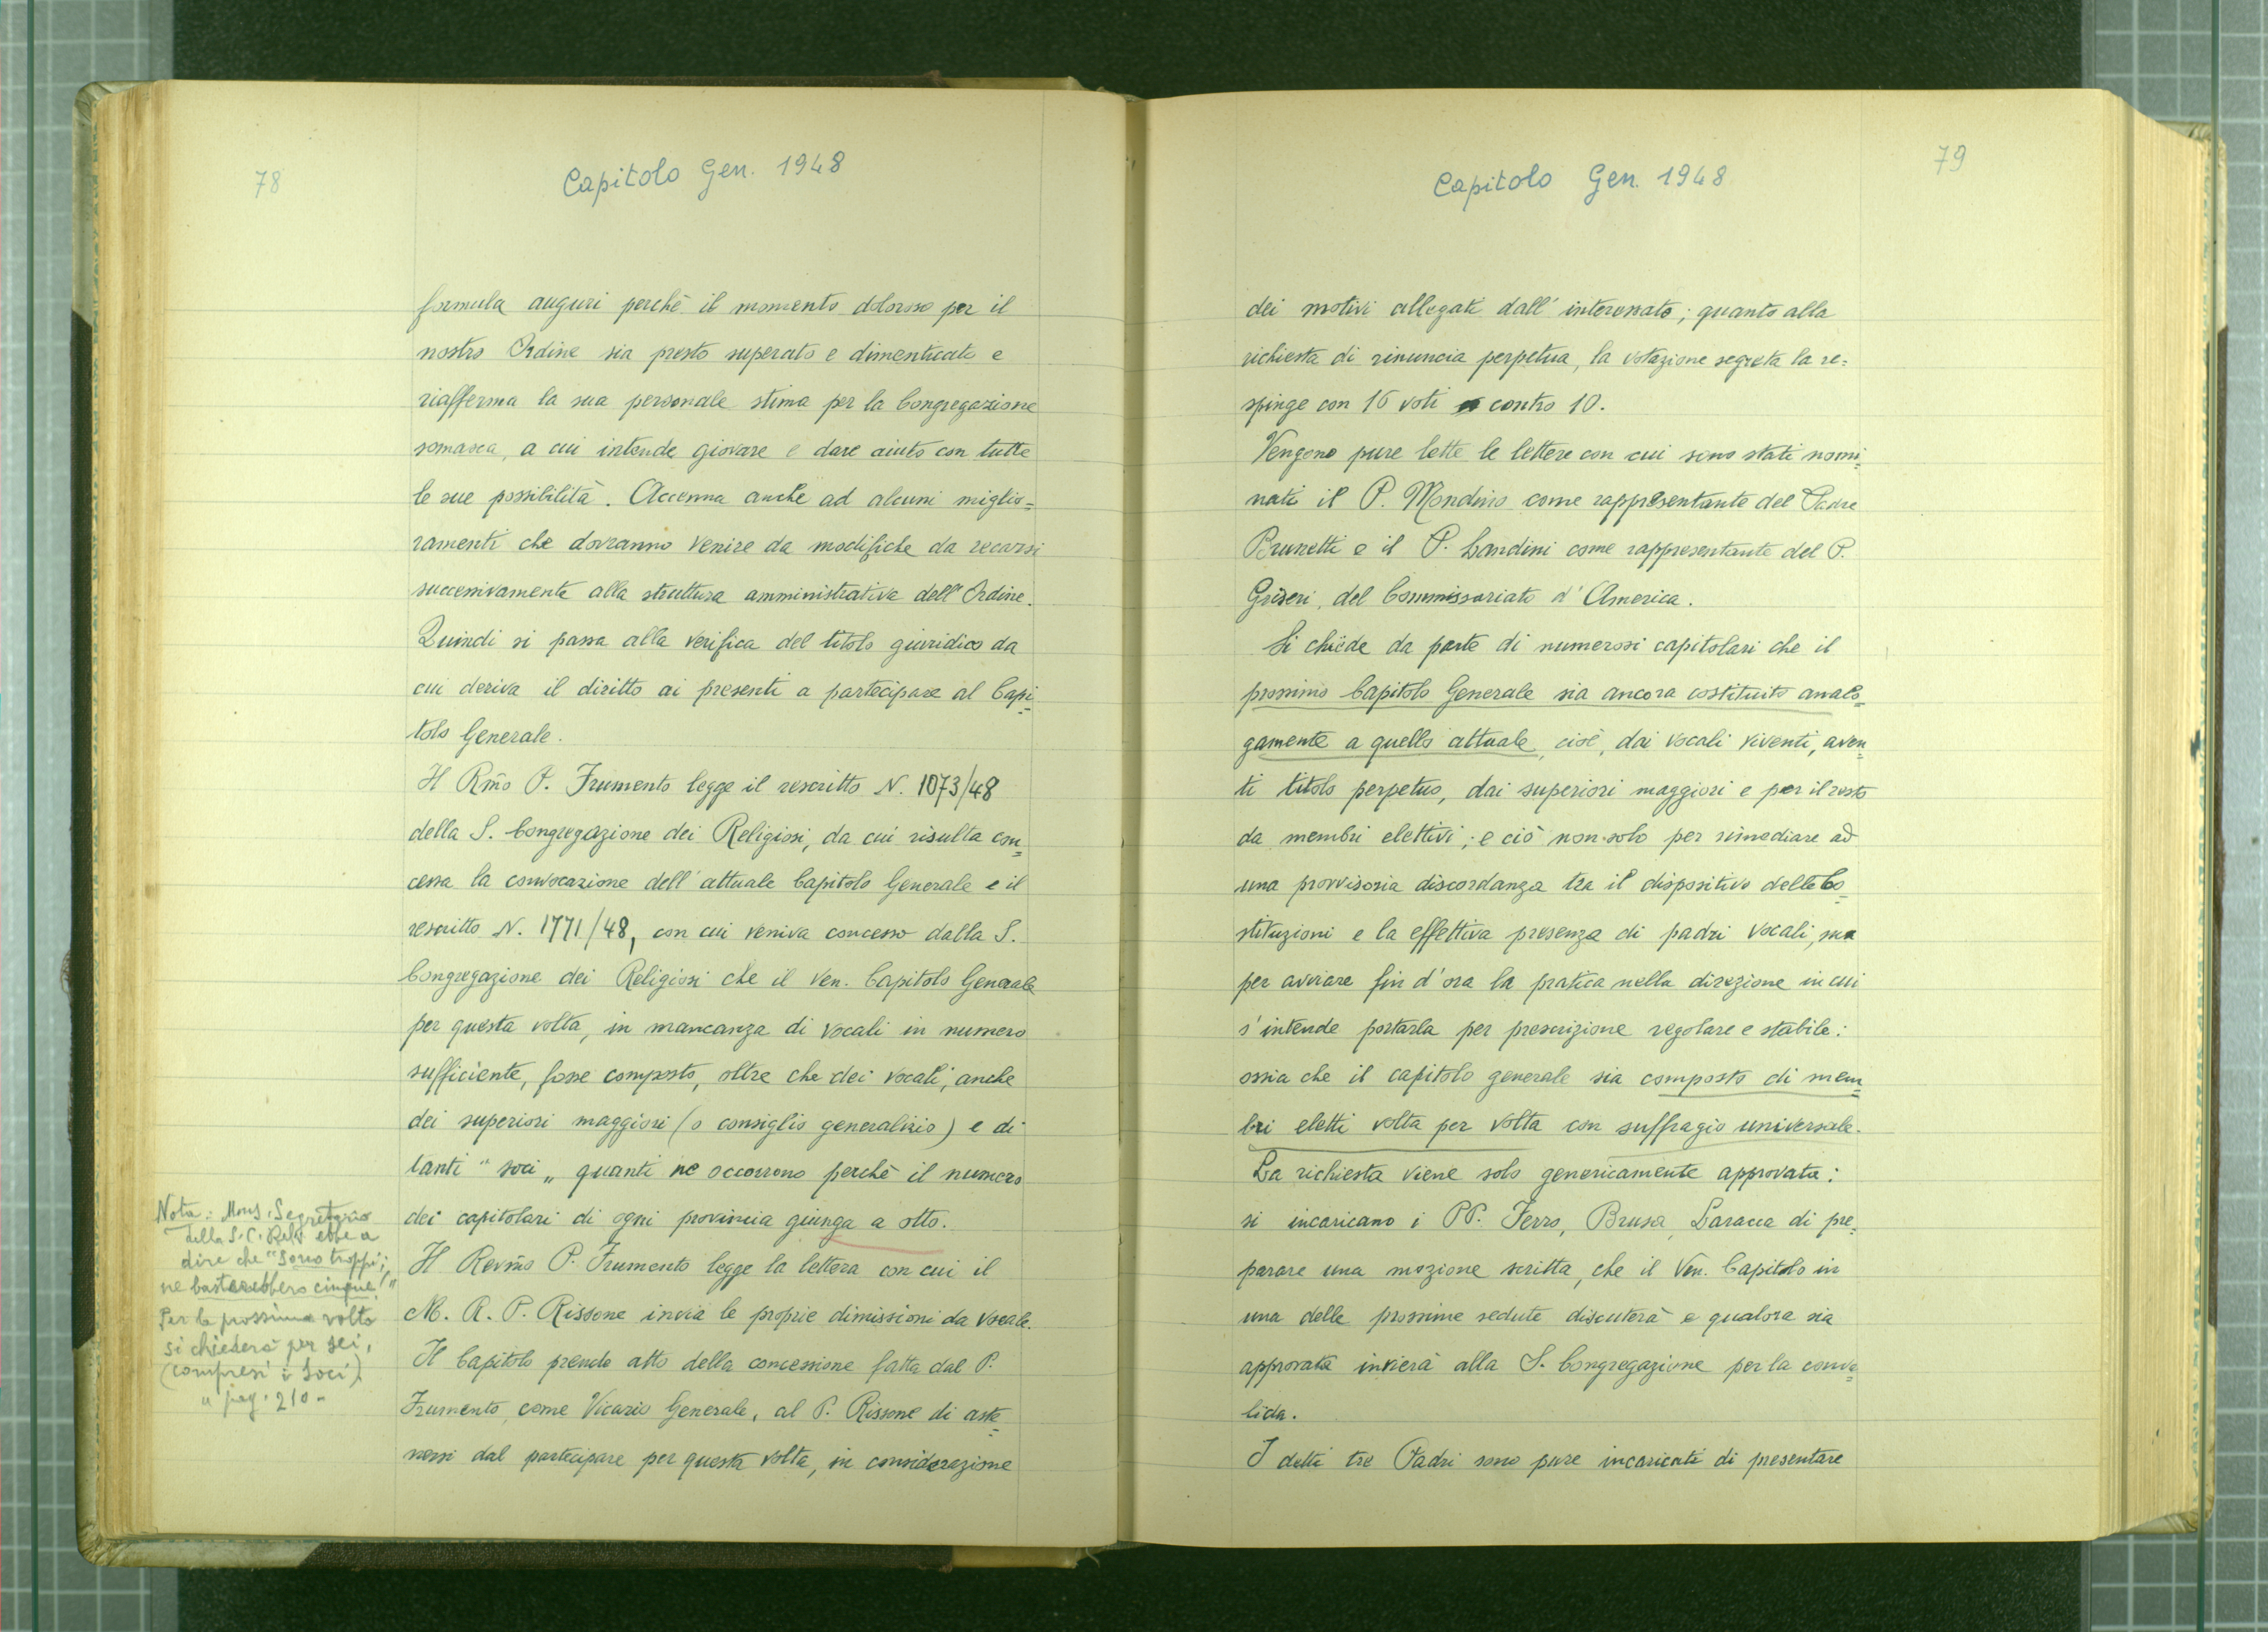 78
Capitolo Gen. 1948
formula auguri perchè il momento doloroso per il
nostro Ordine sia presto superato e dimenticato e
riafferma la sua personale stima per la Congregazione
somasca, a cui intende giovare e dare aiuto con tutte
le sue possibilità. Accenna anche ad alcuni miglio=
ramenti che dovranno venire da modifiche da recarsi
successivamente alla struttura amministrativa dell'Ordine.
Quindi si passa alla verifica del titolo giuridico da
cui deriva il diritto ai presenti a partecipare al Capi=
tolo Generale.
Il Rm̃o P. Frumento legge il rescritto N. 1073/48
della S. Congregazione dei Religiosi, da cui risulta con=
cessa la convocazione dell'attuale Capitolo Generale e il
rescritto N. 1771/48, con cui veniva concesso dalla S.
Congregazione dei Religiosi che il Ven. Capitolo Generale
per questa volta, in mancanza di vocali in numero
sufficiente, fosse composto, oltre che dei vocali, anche
dei superiori maggiori (o consiglio generalizio) e di
tanti "soci„ quanti ne occorrono perchè il numero
dei capitolari di ogni provincia giunga a otto.
Il Revm̃o P. Frumento legge la lettera con cui il
M. R. P. Rissone invia le proprie dimissioni da vocale.
Il Capitolo prende atto della concessione fatta dal P.
Frumento, come Vicario Generale, al P. Rissone di aste=
nersi dal partecipare per questa volta, in considerazione
Nota: Mons. Segretario
della S. C. Relig. ebbe a
dire che "Sono troppi;
ne basterebbero cinque!"
Per la prossima volta
si chiederà per sei,
(compresi i Soci)
" pag. 210-
79
Capitolo Gen. 1948
dei motivi allegati dall'interessato; quanto alla
richiesta di rinuncia perpetua, la votazione segreta la re=
spinge con 16 voti contro 10.
Vengono pure lette le lettere con cui sono stati nomi=
nati il P. Mondino come rappresentante del Padre
Brunetti e il P. Landini come rappresentante del P.
Griseri, del Commissariato d'America.
Si chiede da parte di numerosi capitolari che il
prossimo Capitolo Generale sia ancora costituito analo=
gamente a quello attuale, cioè, dai vocali viventi, aven=
ti titolo perpetuo, dai superiori maggiori e per il resto
da membri elettivi; e ciò non solo per rimediare ad
una provvisoria discordanza tra il dispositivo delle Co=
stituzioni e la effettiva presenza di padri vocali, ma
per avviare fin d'ora la pratica nella direzione in cui
s'intende portarla per prescrizione regolare e stabile:
ossia che il capitolo generale sia composto di mem=
bri eletti volta per volta con suffragio universale.
La richiesta viene solo genericamente approvata:
si incaricano i PP. Ferro, Brusa, Laracca di pre=
parare una mozione scritta, che il Ven. Capitolo in
una delle prossime sedute discuterà e qualora sia
approvata invierà alla S. Congregazione per la conva=
lida.
I detti tre Padri sono pure incaricati di presentare